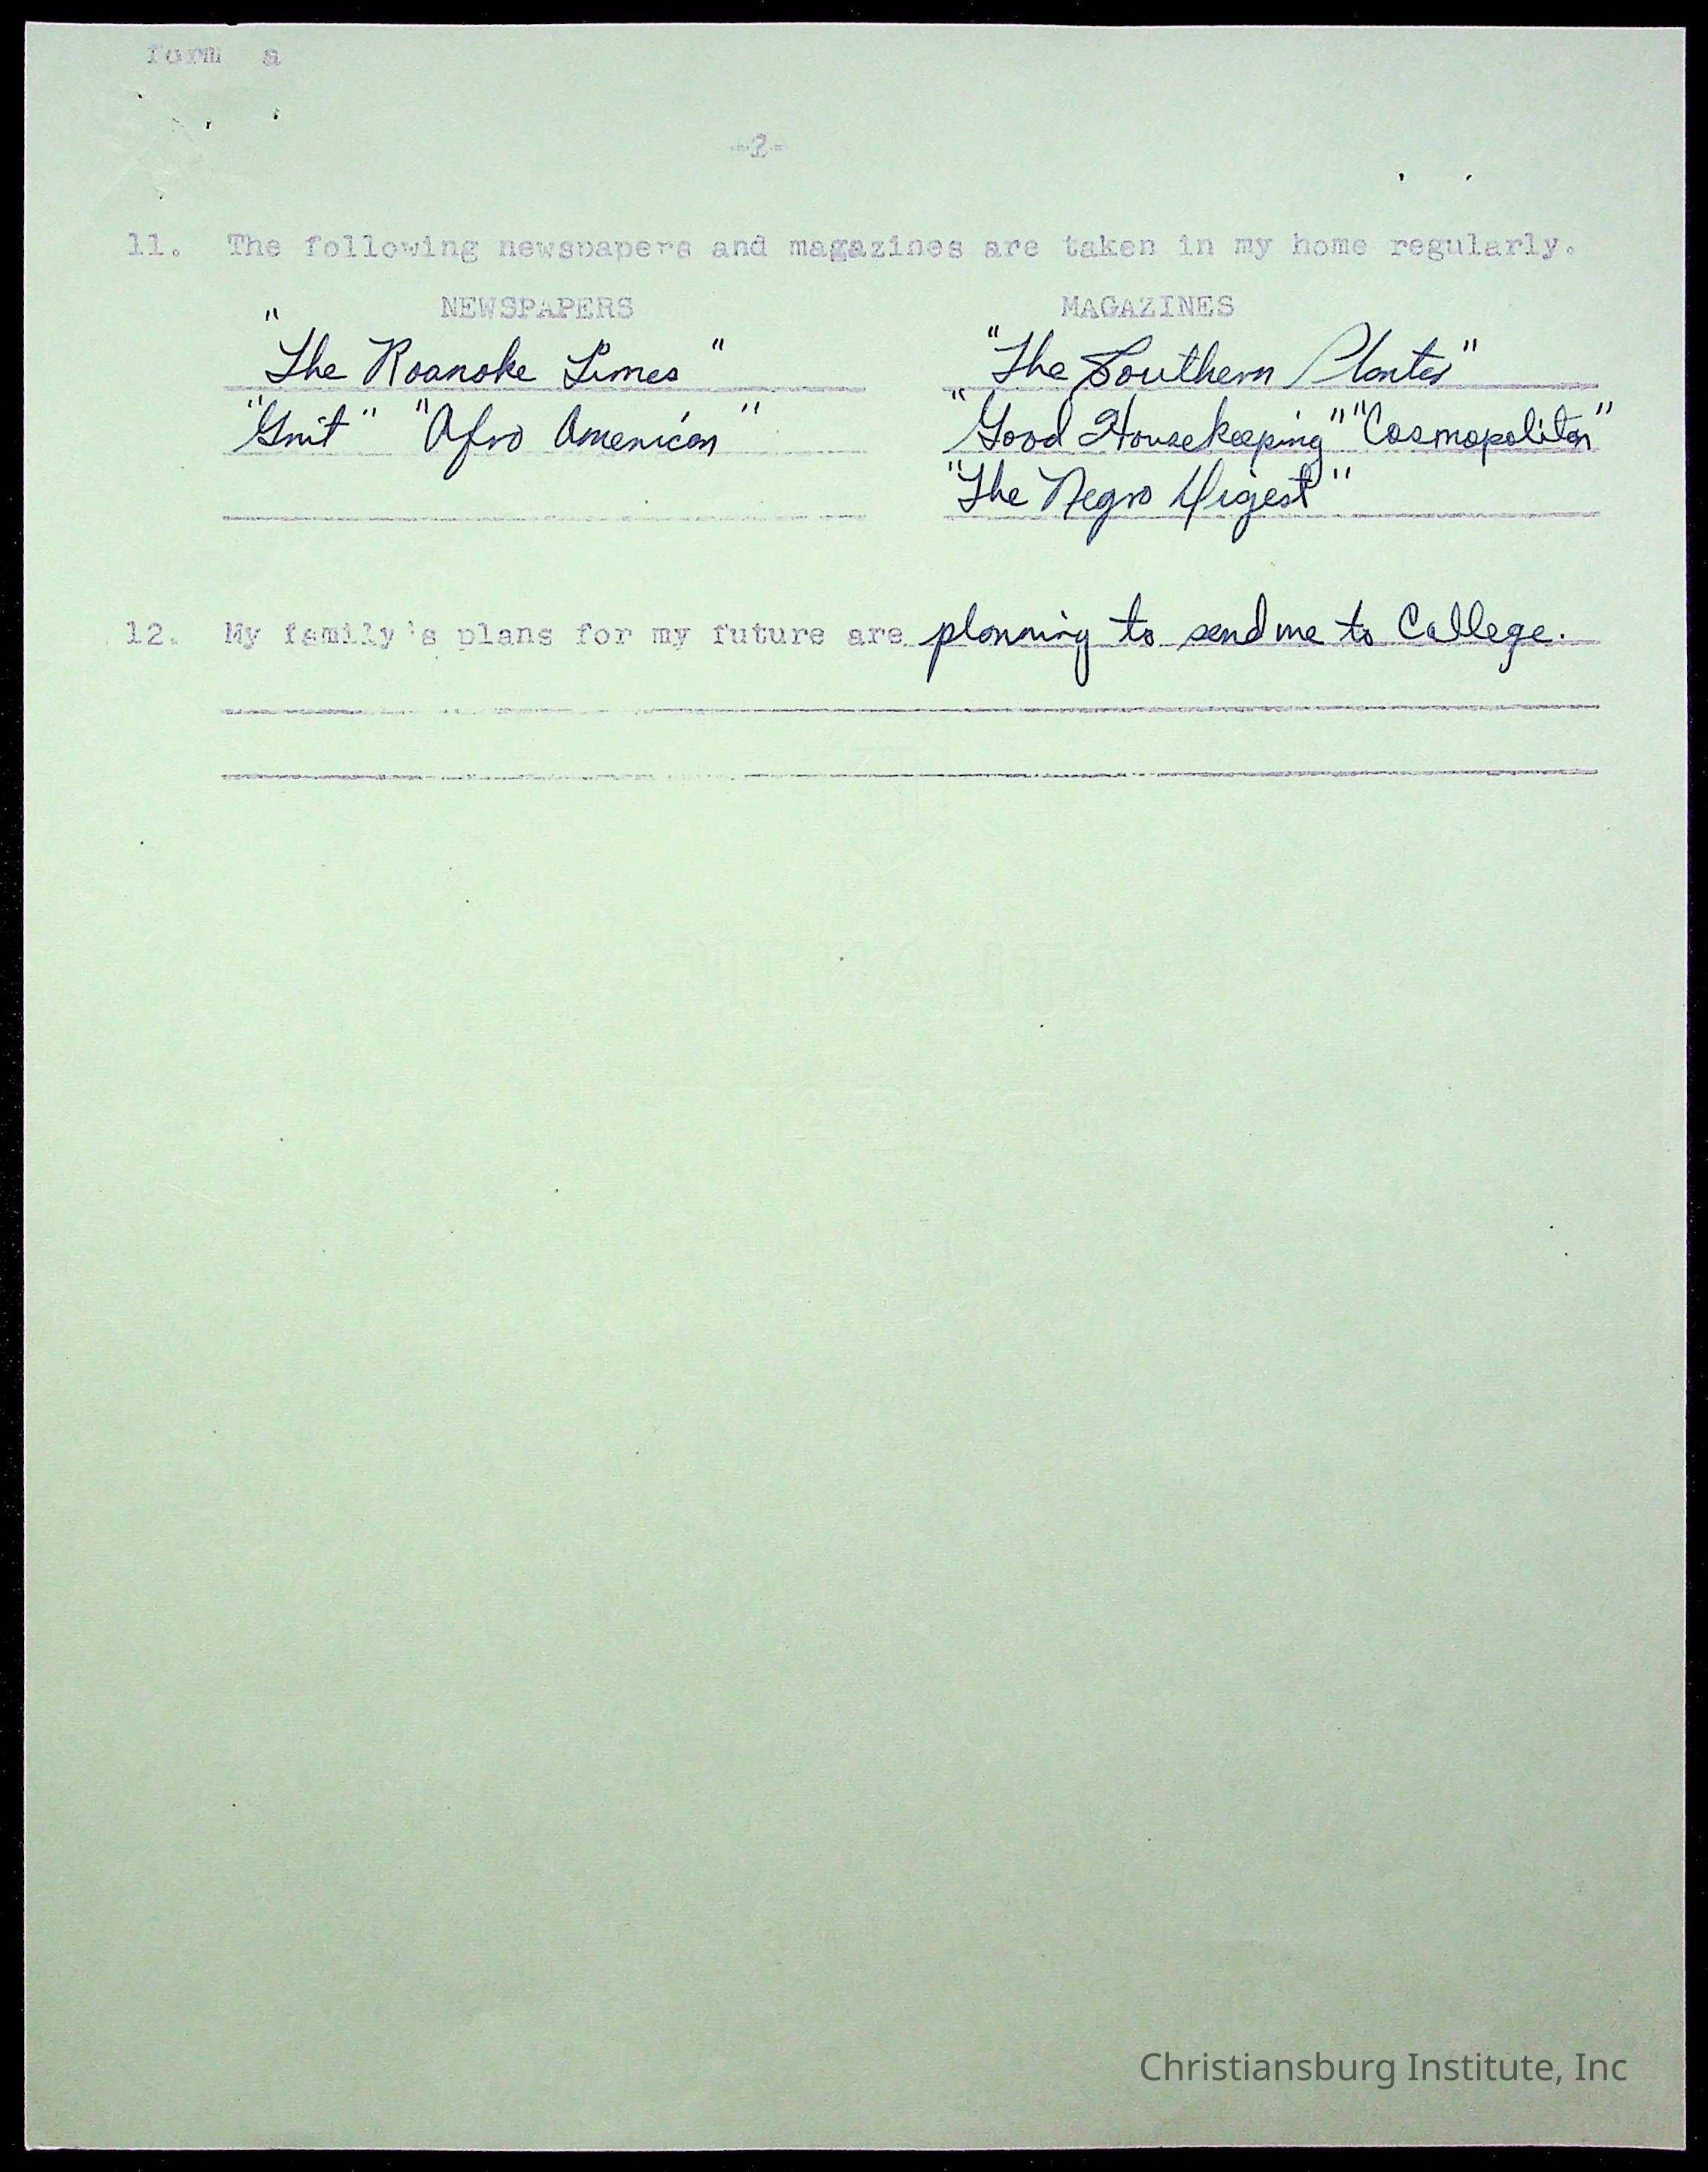 form a
-2-
11. The following newspapers and magazines are taken in my home regularly.
NEWSPAPERS MAGAZINES
"The Roanoke Times" "The Southern Planter"
"Grit" "Afro American" "Good Housekeeping" "Cosmopolitan"
"The Negro Digest"
12. My family's plans for my future are planning to send me to College.
Christiansburg Institute, Inc